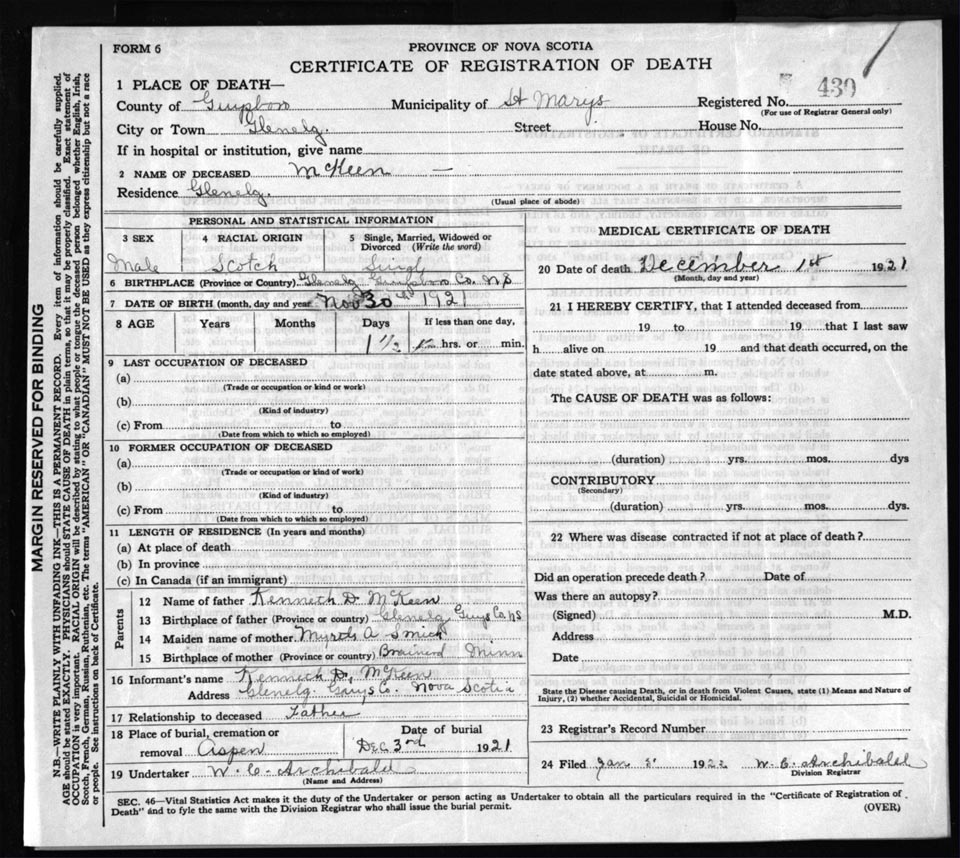 FORM 6
PROVINCE OF NOVA SCOTIA
CERTIFICATE OF REGISTRATION OF DEATH
1 PLACE OF DEATH—
County of Guysboro Municipality of St Marys Registered No. 430
(For use of Registrar General only)
City or Town Glenelg. Street House No.
If in hospital or institution, give name
2 NAME OF DECEASED McKeen —
Residence Glenelg.
(Usual place of abode)
PERSONAL AND STATISTICAL INFORMATION
3 SEX 4 RACIAL ORIGIN 5 Single, Married, Widowed or Divorced (Write the word)
Male Scotch Single
6 BIRTHPLACE (Province or Country) Glenelg Guysboro Co. N S
7 DATE OF BIRTH (month, day and year) Nov 30th 1921
8 AGE Years Months Days If less than one day,
1 1/2 hrs. or min.
9 LAST OCCUPATION OF DECEASED
(a)
(Trade or occupation or kind of work)
(b)
(Kind of industry)
(c) From to
(Date from which to which so employed)
10 FORMER OCCUPATION OF DECEASED
(a)
(Trade or occupation or kind of work)
(b)
(Kind of industry)
(c) From to
(Date from which to which so employed)
11 LENGTH OF RESIDENCE (In years and months)
(a) At place of death
(b) In province
(c) In Canada (if an immigrant)
Parents
12 Name of father Kenneth D McKeen
13 Birthplace of father (Province or country) Glenelg Guys Co NS
14 Maiden name of mother Myrtle A Smith
15 Birthplace of mother (Province or country) Brainerd Minn
16 Informant's name Kenneth D. McKeen
Address Glenelg. Guys Co. Nova Scotia
17 Relationship to deceased Father
18 Place of burial, cremation or removal Aspen Date of burial Dec 3rd 1921
19 Undertaker W. C. Archibald
(Name and Address)
MEDICAL CERTIFICATE OF DEATH
20 Date of death December 1st 1921
(Month, day and year)
21 I HEREBY CERTIFY, that I attended deceased from
19 to 19 that I last saw
h alive on 19 and that death occurred, on the
date stated above, at m.
The CAUSE OF DEATH was as follows:
(duration) yrs. mos. dys
CONTRIBUTORY
(Secondary)
(duration) yrs. mos. dys.
22 Where was disease contracted if not at place of death?
Did an operation precede death? Date of
Was there an autopsy?
(Signed) M.D.
Address
Date
State the Disease causing Death, or in death from Violent Causes, state (1) Means and Nature of
Injury, (2) whether Accidental, Suicidal or Homicidal.
23 Registrar's Record Number
24 Filed Jan 3 1922 W. C. Archibald
Division Registrar
SEC. 46—Vital Statistics Act makes it the duty of the Undertaker or person acting as Undertaker to obtain all the particulars required in the "Certificate of Registration of
Death" and to fyle the same with the Division Registrar who shall issue the burial permit. (OVER)
MARGIN RESERVED FOR BINDING
N.B.—WRITE PLAINLY WITH UNFADING INK—THIS IS A PERMANENT RECORD. Every item of information should be carefully supplied.
AGE should be stated EXACTLY. PHYSICIANS should STATE CAUSE OF DEATH in plain terms, so that it may be properly classified. Exact statement of
OCCUPATION is very important. RACIAL ORIGIN will be described by stating to what people or tongue the deceased person belonged whether English, Irish,
Scotch, French, German, Russian, Ruthenian, etc. The terms "AMERICAN" OR "CANADIAN" MUST NOT BE USED as they express citizenship but not a race
or people. See instructions on back of Certificate.